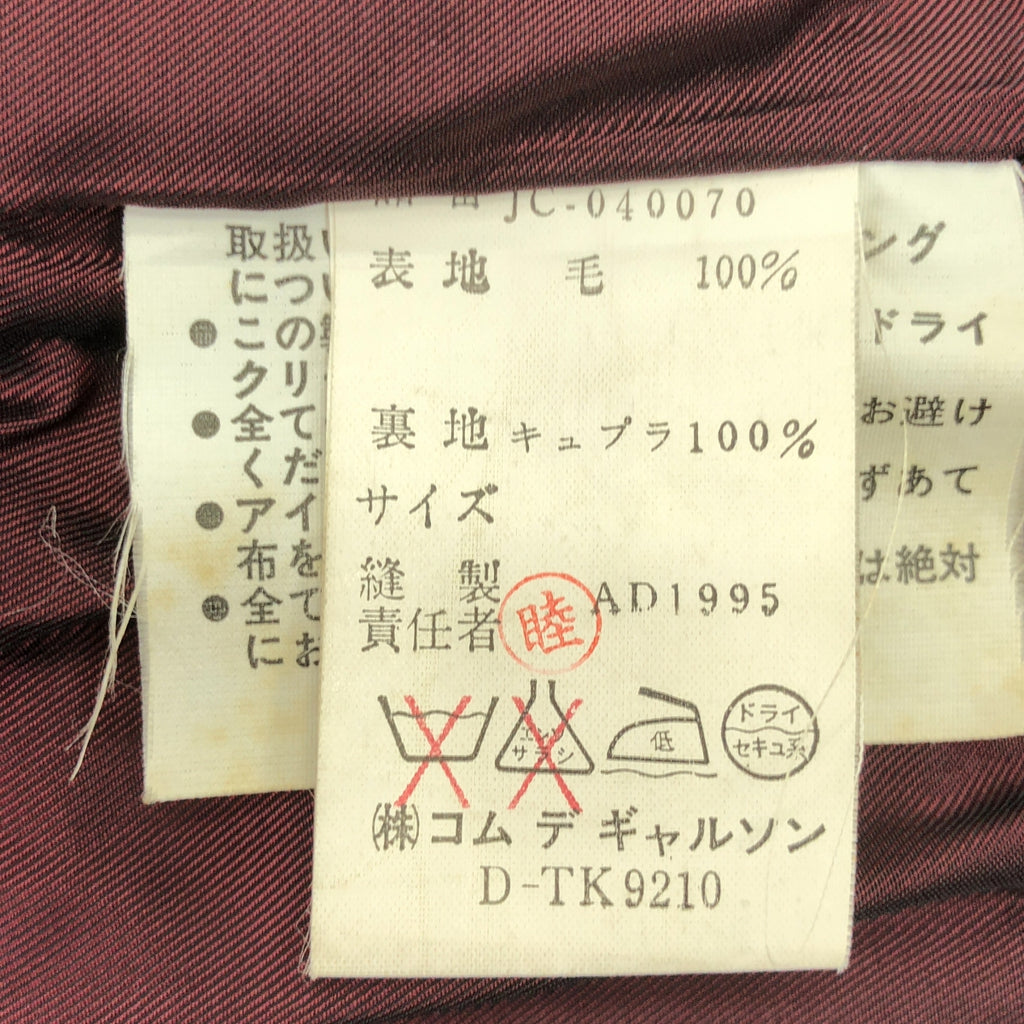 品番 JC-040070
表地 毛 100%
裏地 キュプラ100%
サイズ
縫製
責任者 睦 AD1995
エンソ
サラシ
低
ドライ
セキユ系
㈱コム デ ギャルソン
D-TK9210
取扱い
につい
●このリ
ク
●全て
くだ
●アイ
布を
●全て
にお
ング
ドライ
お避け
ずあて
は絶対